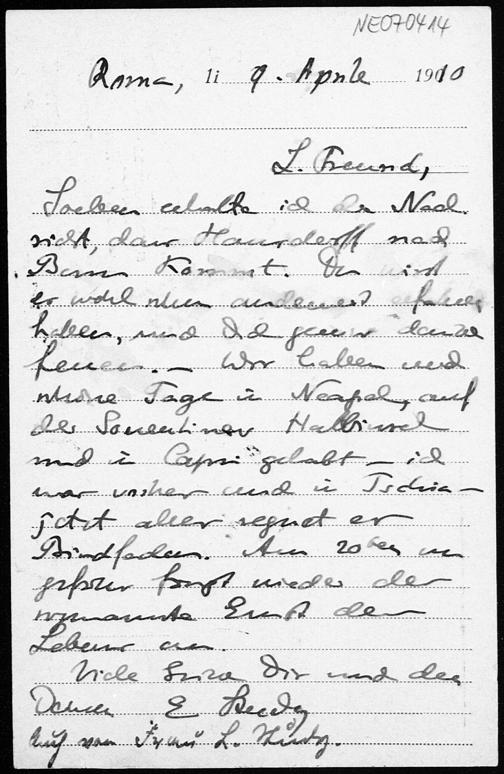 NE070414
Roma, li 9. Aprile 1910
L. Freund,
Soeben erhalte ich die Nach
richt, dass Hausdorff nach
Bonn kommt. Du wirst
es wohl schon anderweit erfahren
haben, und Dich gewiss darüber
freuen. — Wir haben
schöne Tage in Neapel, auf
der Sorrentiner Halbinsel
und in Capri gehabt — ich
war vorher und in Ischia —
jetzt aber regnet es
Bindfaden. Am 20ten
fängt wieder der
sogenannte Ernst des
Lebens an.
Viele Grüsse Dir und den
Damen E
von L.